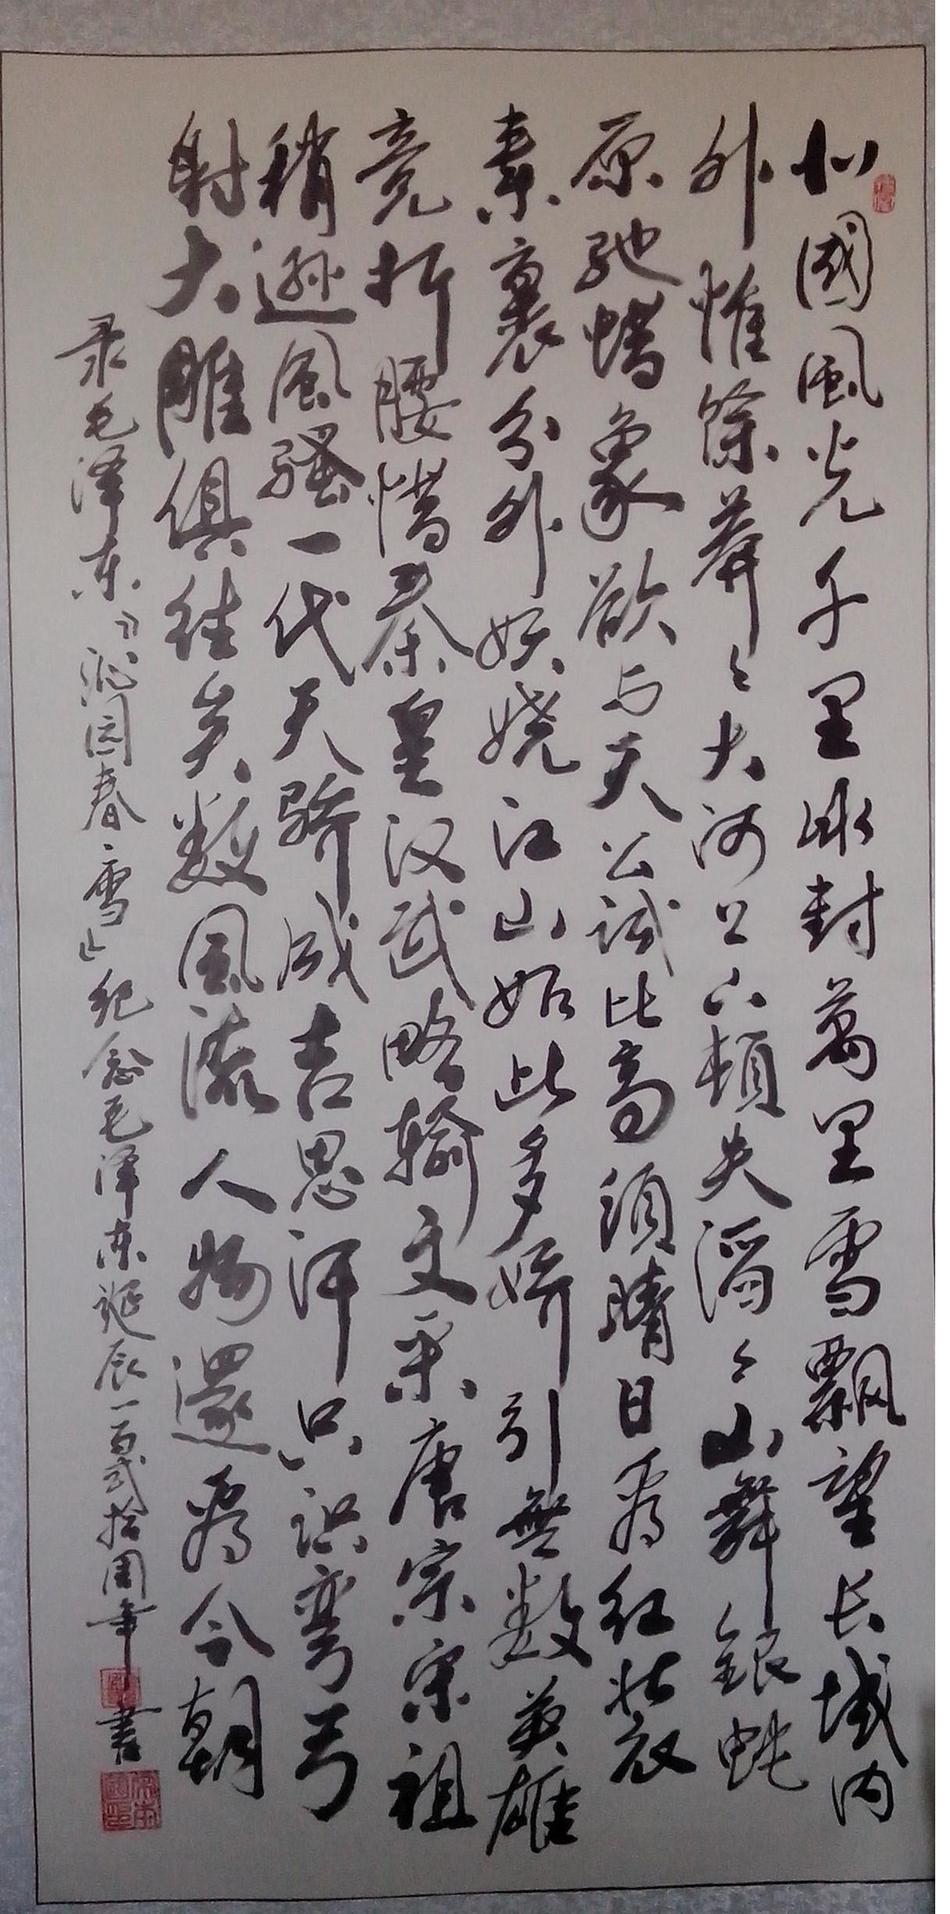 北國風光千里冰封萬里雪飄望长城内
外惟餘莽〻大河上下頓失滔〻山舞銀蛇
原馳蠟象欲与天公試比高須晴日看红装
素裹分外妖娆江山如此多娇引無数英雄
竞折腰惜秦皇汉武略输文采唐宗宋祖
稍遜風骚一代天骄成吉思汗只识彎弓
射大雕俱往矣数風流人物還看今朝
录毛泽东《沁园春·雪》纪念毛泽东诞辰一百弍拾周年
書